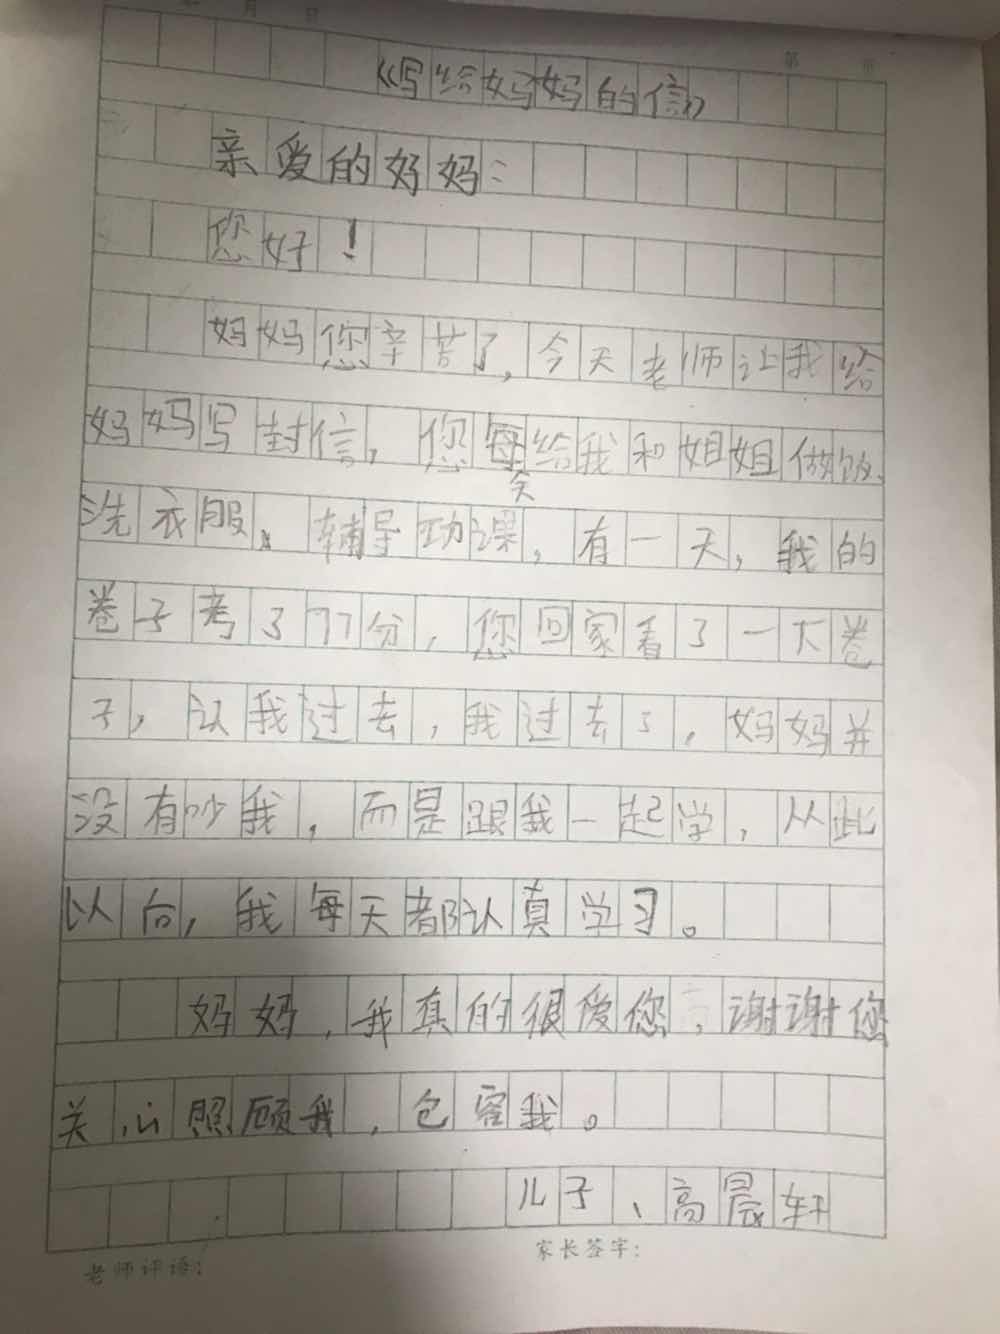 年 月 日
第 页
《写给妈妈的信》
亲爱的妈妈：
您好！
妈妈您辛苦了，今天老师让我给
妈妈写封信，您每天给我和姐姐做饭、
洗衣服、辅导功课，有一天，我的
卷子考了77分，您回家看了一下卷
子，让我过去，我过去了，妈妈并
没有吵我，而是跟我一起学，从此
以向，我每天都认真学习。
妈妈，我真的很爱您，谢谢您
关心照顾我，包容我。
儿子、高晨轩
家长签字：
老师评语：